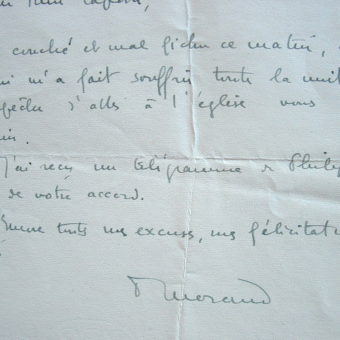 couché et mal fichu ce matin,
m'a fait souffrir toute la nuit
d'aller à l'église vous
J'ai reçu un télégramme de Philip
de votre accord.
toutes mes excuses, mes félicitat
Morand